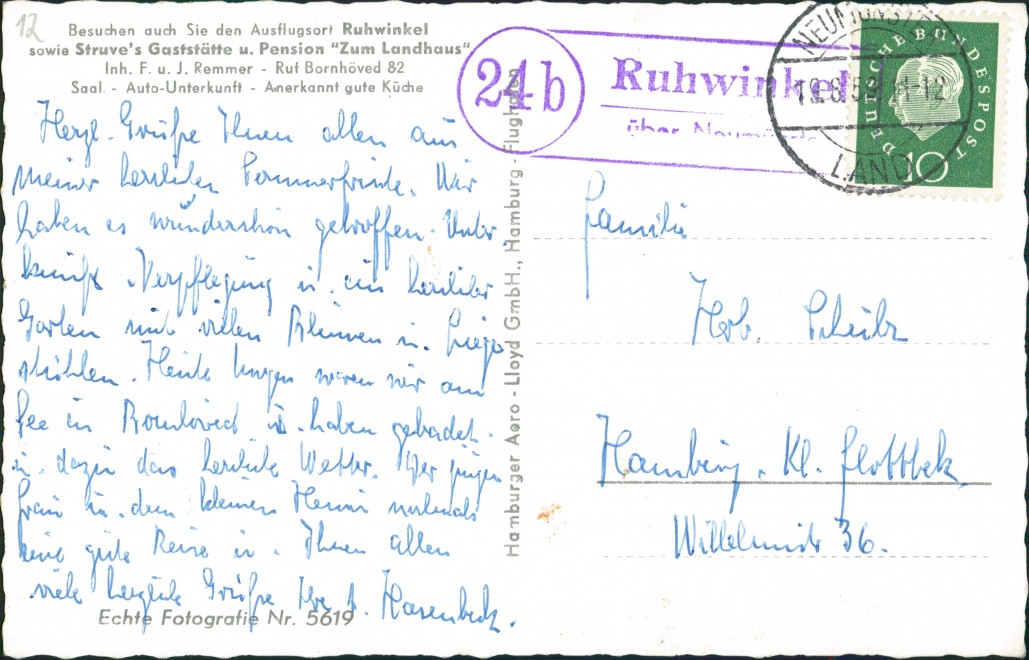 12
Besuchen auch Sie den Ausflugsort Ruhwinkel
sowie Struve's Gaststätte u. Pension "Zum Landhaus"
Inh. F. u. J. Remmer - Ruf Bornhöved 82
Saal - Auto-Unterkunft - Anerkannt gute Küche
Herzl. Grüße Ihnen allen aus
meiner herrlichen Sommerfrische. Wir
haben es wunderschön getroffen. Unter-
kunft, Verpflegung u. ein herrlicher
Garten mit vielen Blumen u. Liege-
stühlen. Heute Morgen waren wir am
See in Bornhöved u. haben gebadet.
u. dazu das herrliche Wetter. Der jungen
Frau u. dem kleinen nochmals
eine gute Reise u. Ihnen allen
viele herzliche Grüße Ihre Hasenbeck.
Echte Fotografie Nr. 5619
Hamburger Aero - Lloyd GmbH., Hamburg - Flughafen
24b
Ruhwinkel
über Neumünster
NEUMÜNSTER
LAND
DEUTSCHE BUNDESPOST
10
Familie
Herb. Schulz
Hamburg. Kl. Flottbek
36.